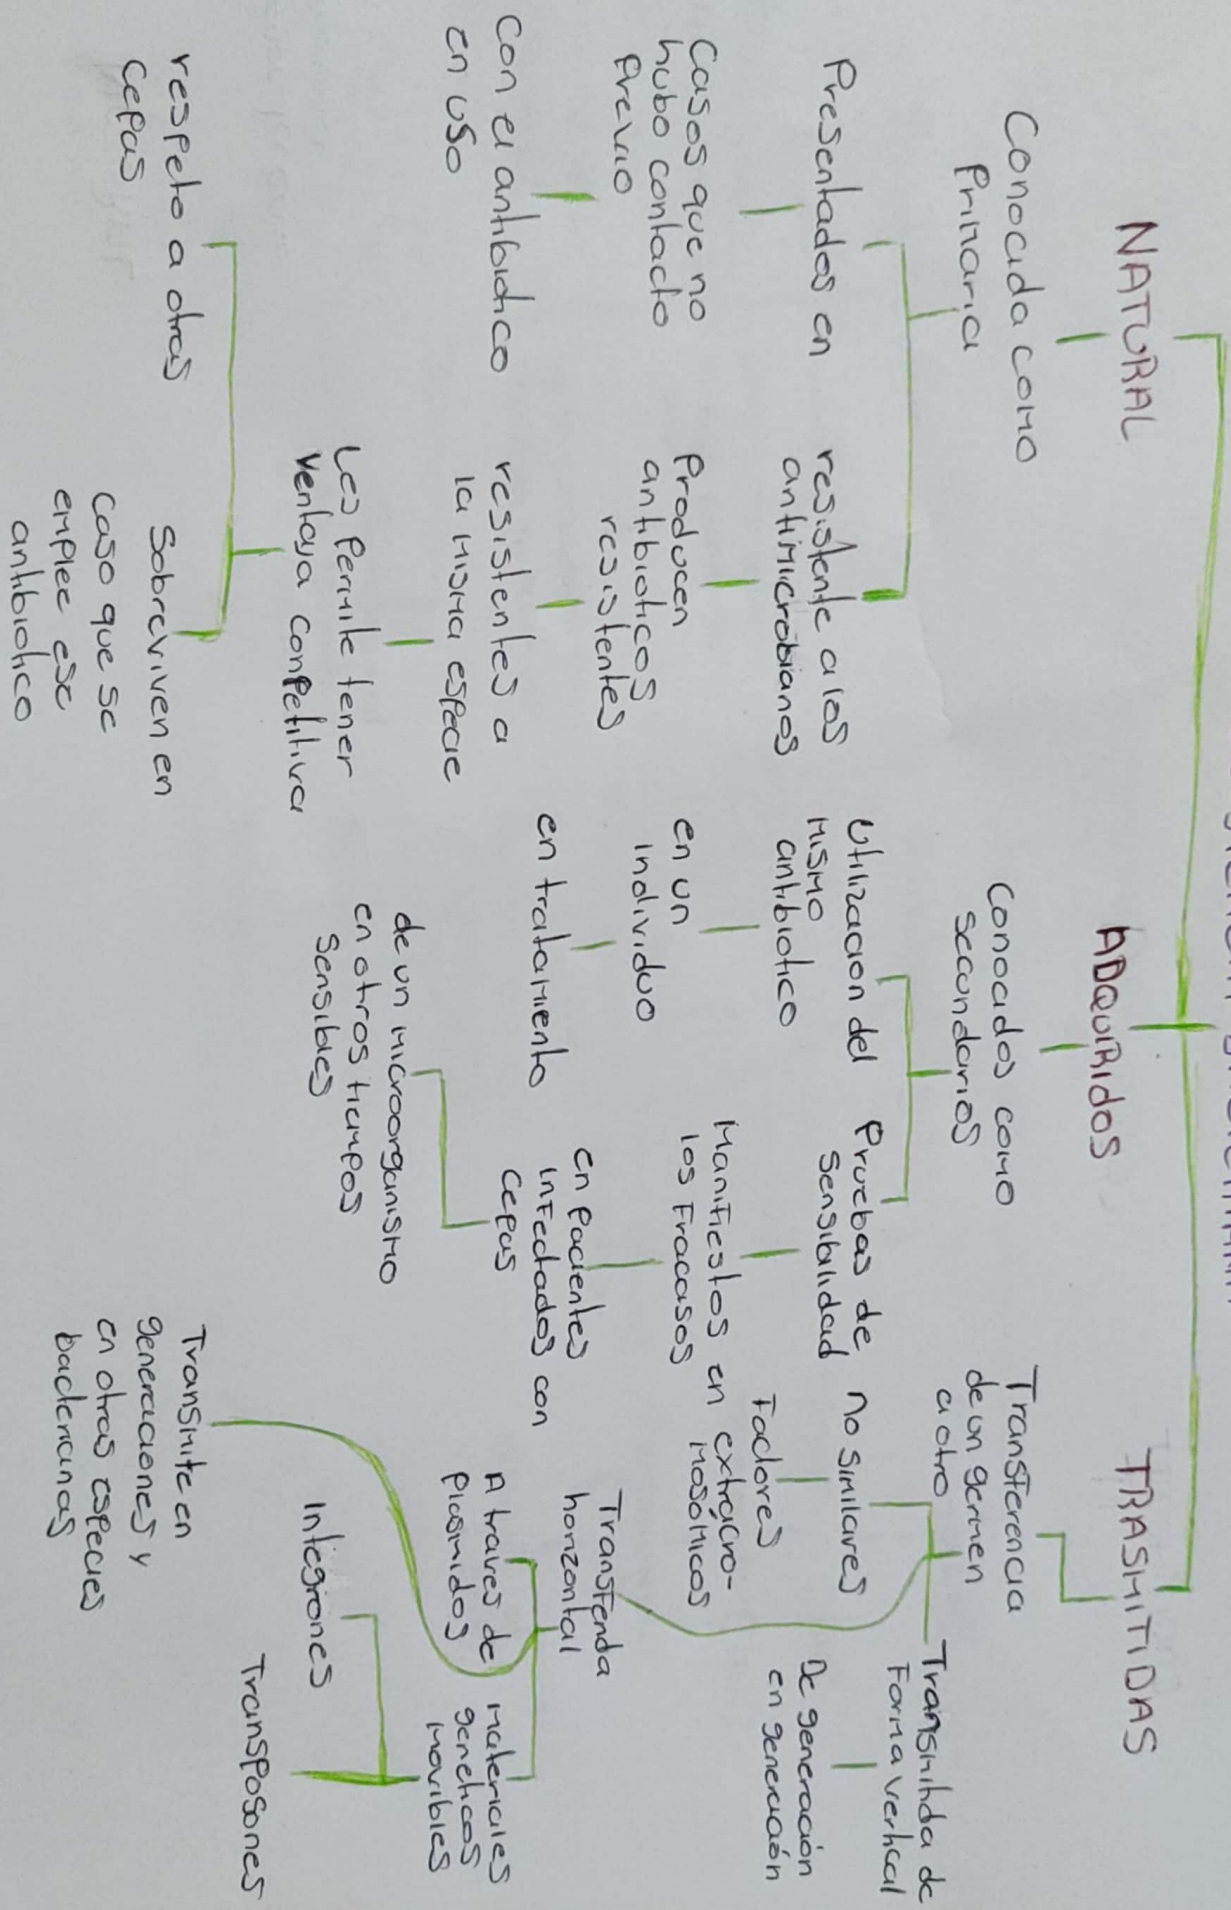 NATURAL
Conocida como
Primaria
Presentados en
Casos que no
hubo contacto
Previo
Con el antibiotico
en uso
resistente a los
antimicrobianos
Producen
antibioticos
resistentes
resistentes a
la misma especie
Les Permite tener
ventaja competitiva
respeto a otras
cepas
Sobreviven en
caso que se
emplee ese
antibiotico
ADQUIRIdOS
Conocidos como
secundarios
Utilizacion del
mismo
antibiotico
en un
individuo
en tratamiento
Pruebas de
sensibilidad
Manifiestos en
los Fracasos
en pacientes
infectados con
cepas
de un microorganismo
en otros tiempos
sensibles
TRASMITIDAS
Transferencia
de un germen
a otro
no similares
Factores
extracro-
mosómicos
Transmitida de
Forma vertical
De generación
en generación
Transferida
horizontal
A traves de
plasmidos
materiales
geneticos
movibles
Integrones
Transposones
Transmite en
generaciones y
en otras especies
bacterianas